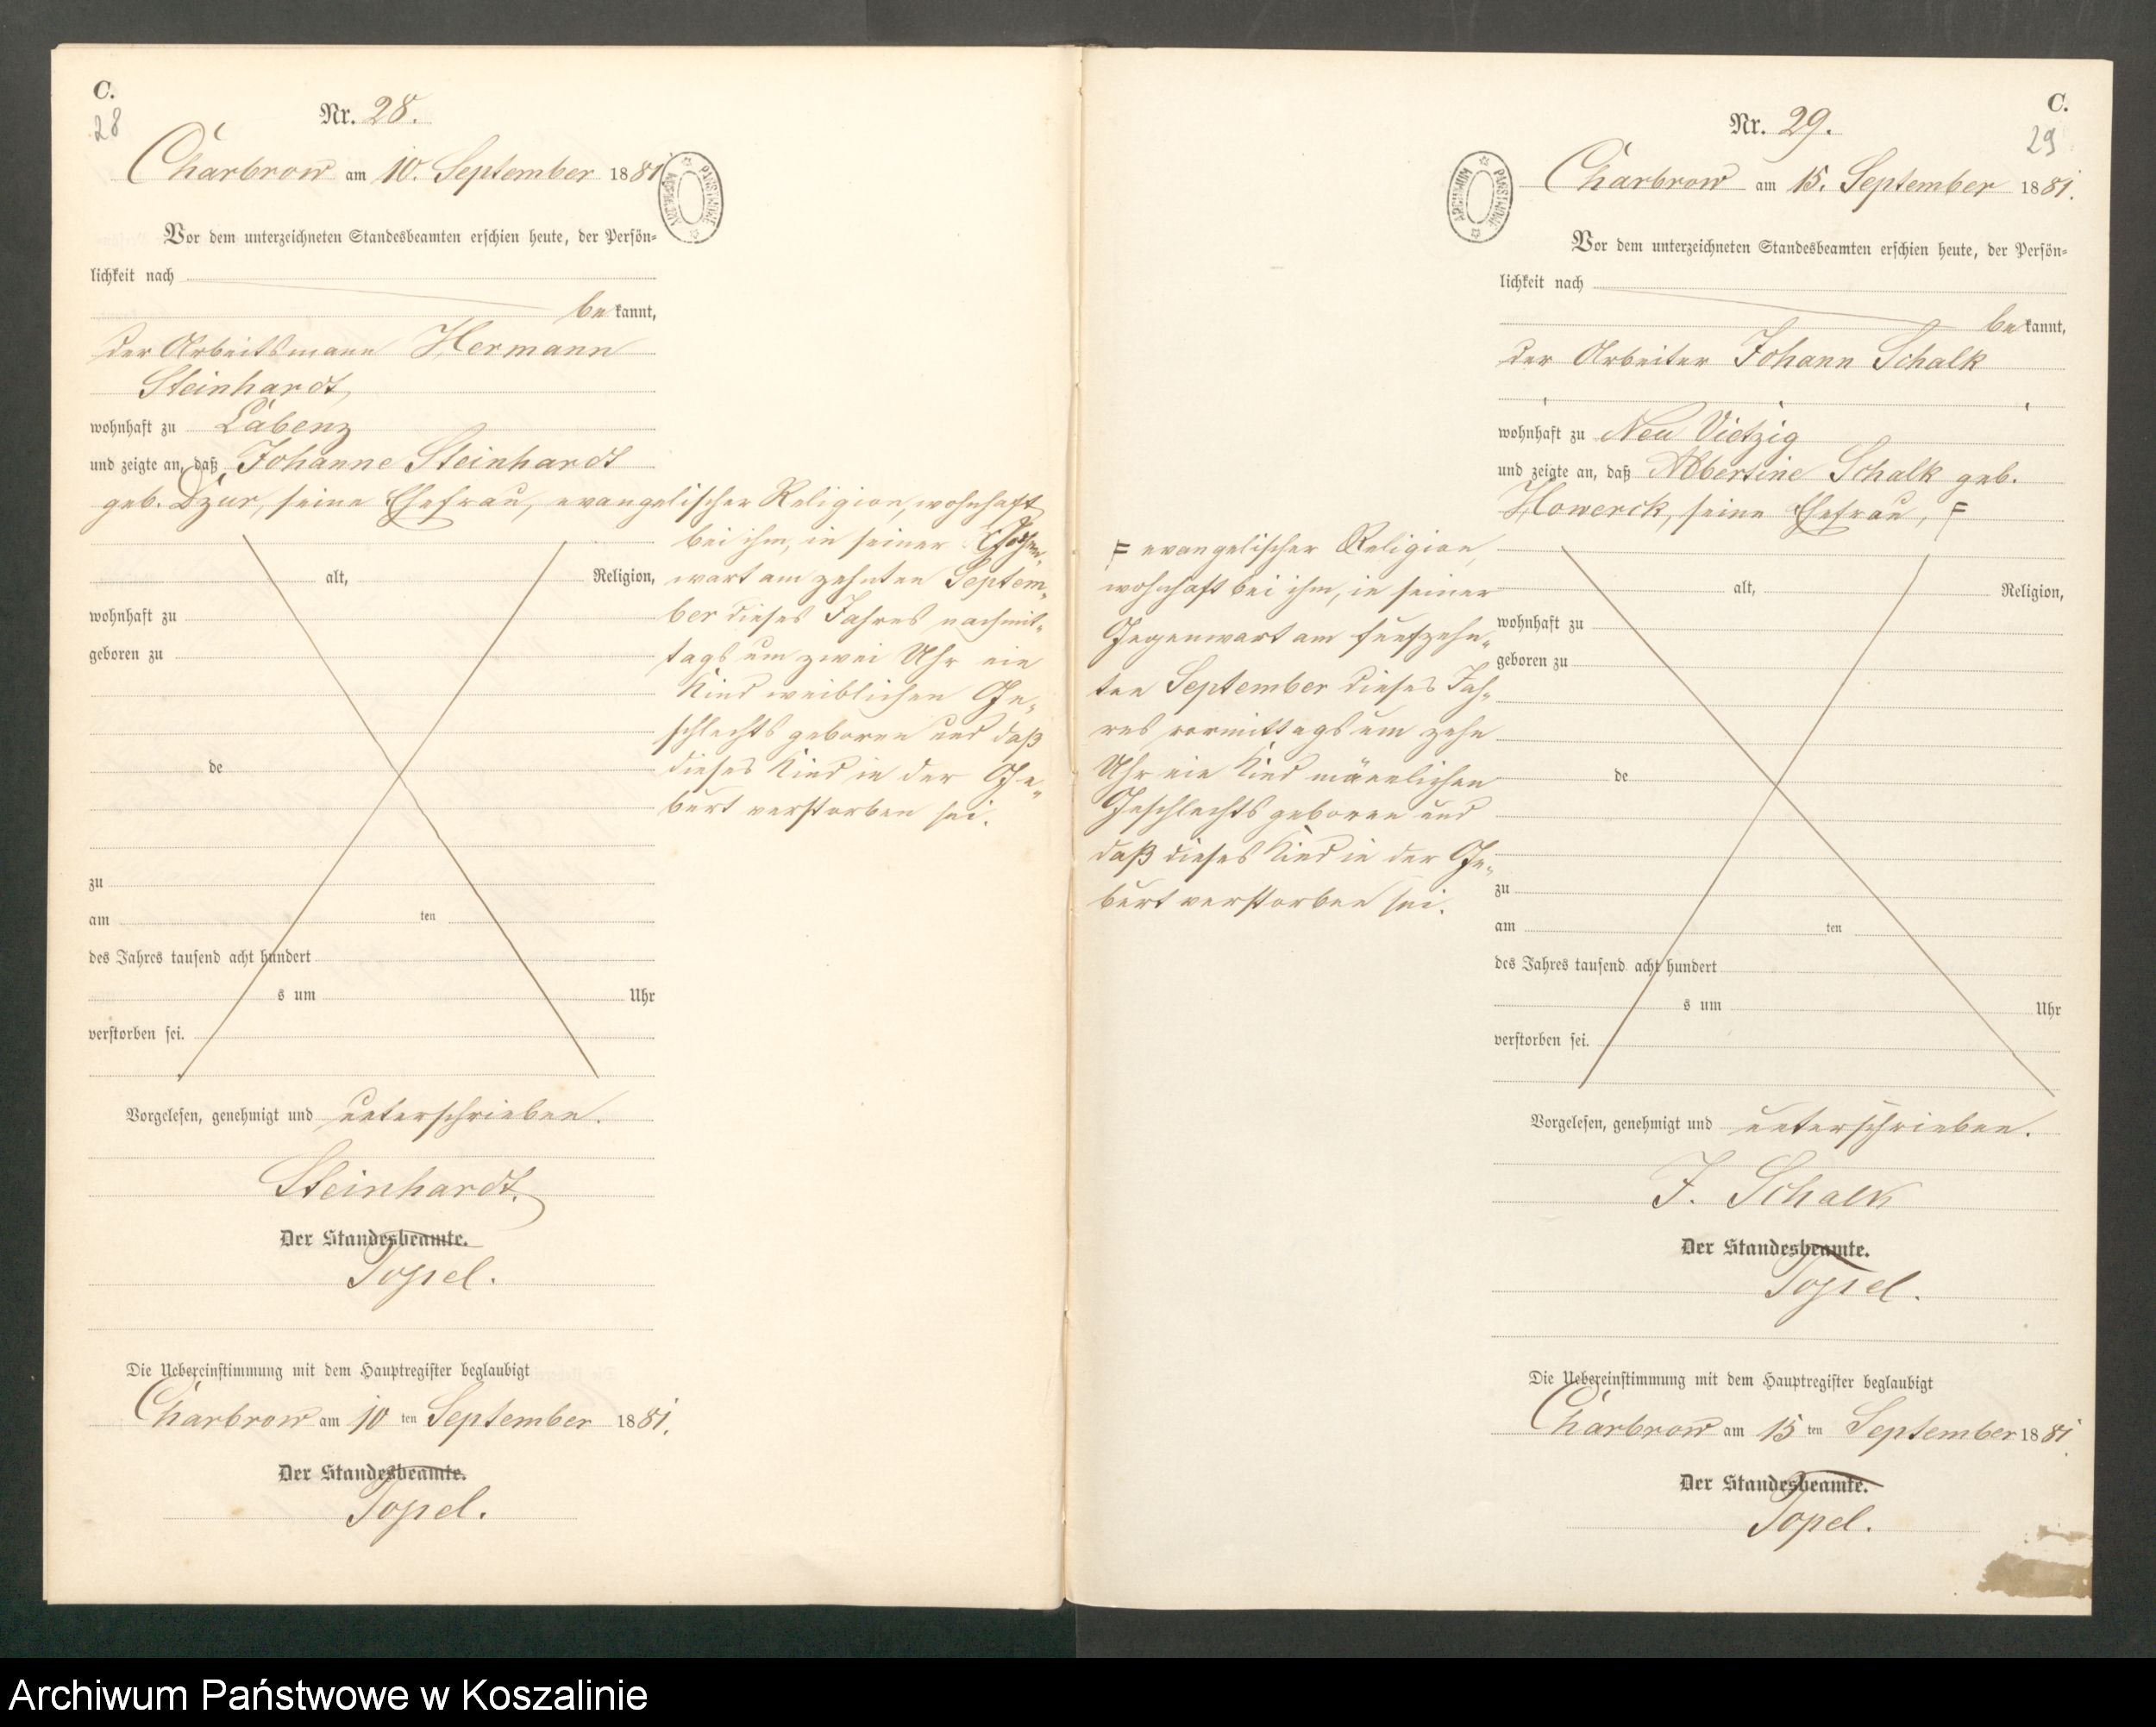 C.
28
Nr. 28.
Charbrow am 10. September 1881
ARCHIWUM PAŃSTWOWE
Vor dem unterzeichneten Standesbeamten erschien heute, der Persön-
lichkeit nach
bekannt,
der Arbeitsmann Hermann
Steinhardt,
wohnhaft zu Labenz
und zeigte an, daß Johanne Steinhardt
geb. Dzur, seine Ehefrau, evangelischer Religion, wohnhaft
bei ihm, in seiner Gegen-
wart am zehnten Septem-
ber dieses Jahres nachmit-
tags um zwei Uhr ein
Kind weiblichen Ge-
schlechts geboren und daß
dieses Kind in der Ge-
burt verstorben sei.
alt, Religion,
wohnhaft zu
geboren zu
de
zu
am ten
des Jahres tausend acht hundert
s um Uhr
verstorben sei.
Vorgelesen, genehmigt und unterschrieben.
Steinhardt.
Der Standesbeamte.
Topel.
Die Uebereinstimmung mit dem Hauptregister beglaubigt
Charbrow am 10 ten September 1881.
Der Standesbeamte.
Topel.
C.
29
Nr. 29.
Charbrow am 15. September 1881.
ARCHIWUM PAŃSTWOWE
Vor dem unterzeichneten Standesbeamten erschien heute, der Persön-
lichkeit nach
bekannt,
der Arbeiter Johann Schalk
wohnhaft zu Neu Vietzig
und zeigte an, daß Albertine Schalk geb.
Howerck, seine Ehefrau, F
F evangelischer Religion,
wohnhaft bei ihm, in seiner
Gegenwart am fünfzehn-
ten September dieses Jah-
res vormittags um zehn
Uhr ein Kind männlichen
Geschlechts geboren und
daß dieses Kind in der Ge-
burt verstorben sei.
alt, Religion,
wohnhaft zu
geboren zu
de
zu
am ten
des Jahres tausend acht hundert
s um Uhr
verstorben sei.
Vorgelesen, genehmigt und unterschrieben.
J. Schalk
Der Standesbeamte.
Topel.
Die Uebereinstimmung mit dem Hauptregister beglaubigt
Charbrow am 15 ten September 1881.
Der Standesbeamte.
Topel.
Archiwum Państwowe w Koszalinie